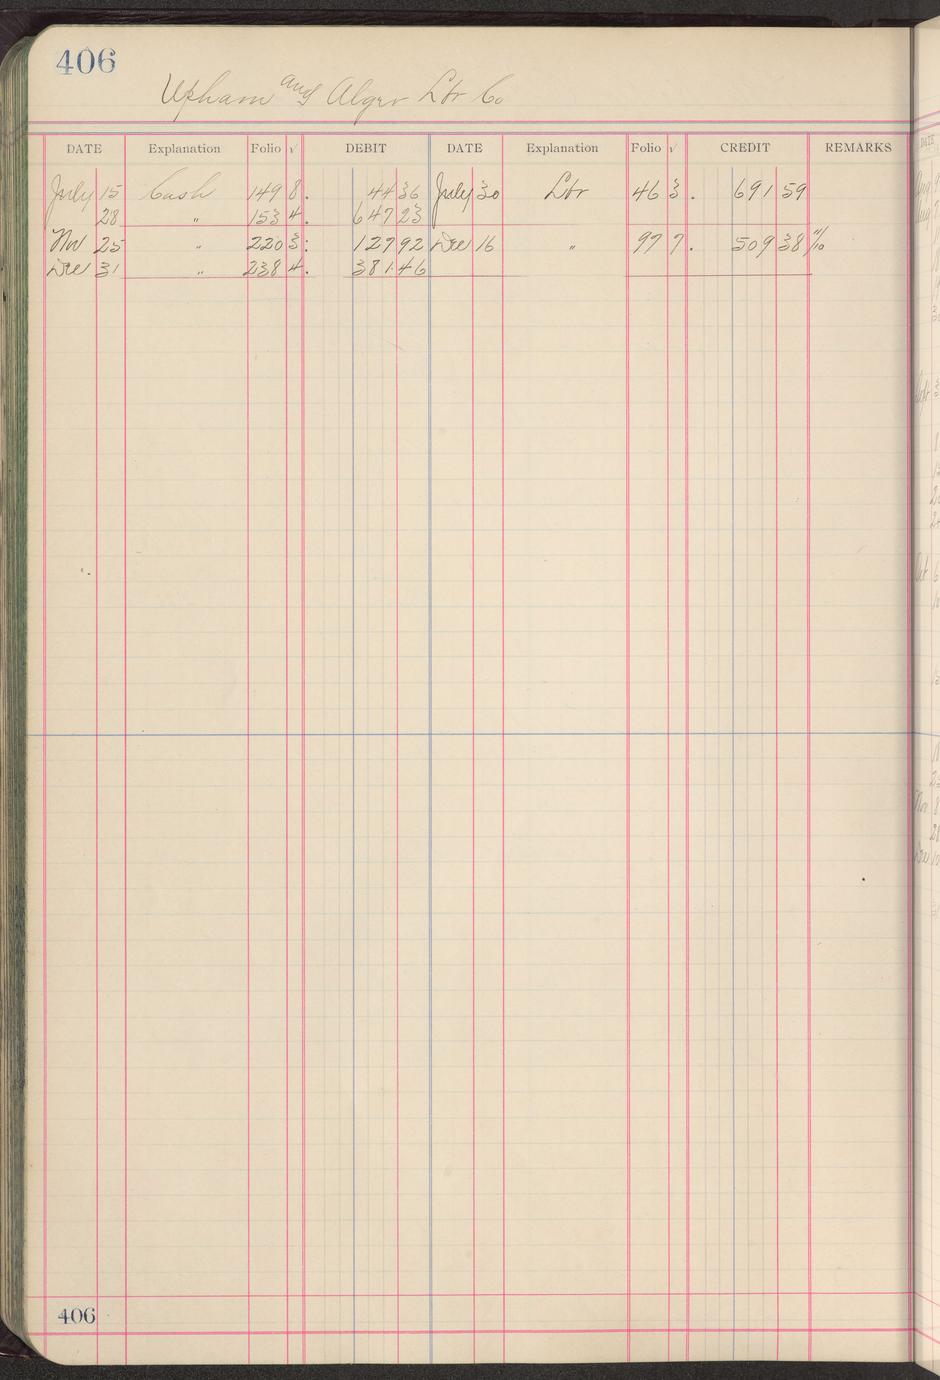 406
Upham and Alger Lbr Co
DATE Explanation Folio √ DEBIT DATE Explanation Folio √ CREDIT REMARKS
July 15 Cash 149 8. 44 36 July 30 Lbr 46 3. 691 59
28 " 153 4. 647 23
Nov 25 " 220 3: 127 92 Dec 16 " 97 7. 509 38
Dec 31 " 238 4. 381.46
406